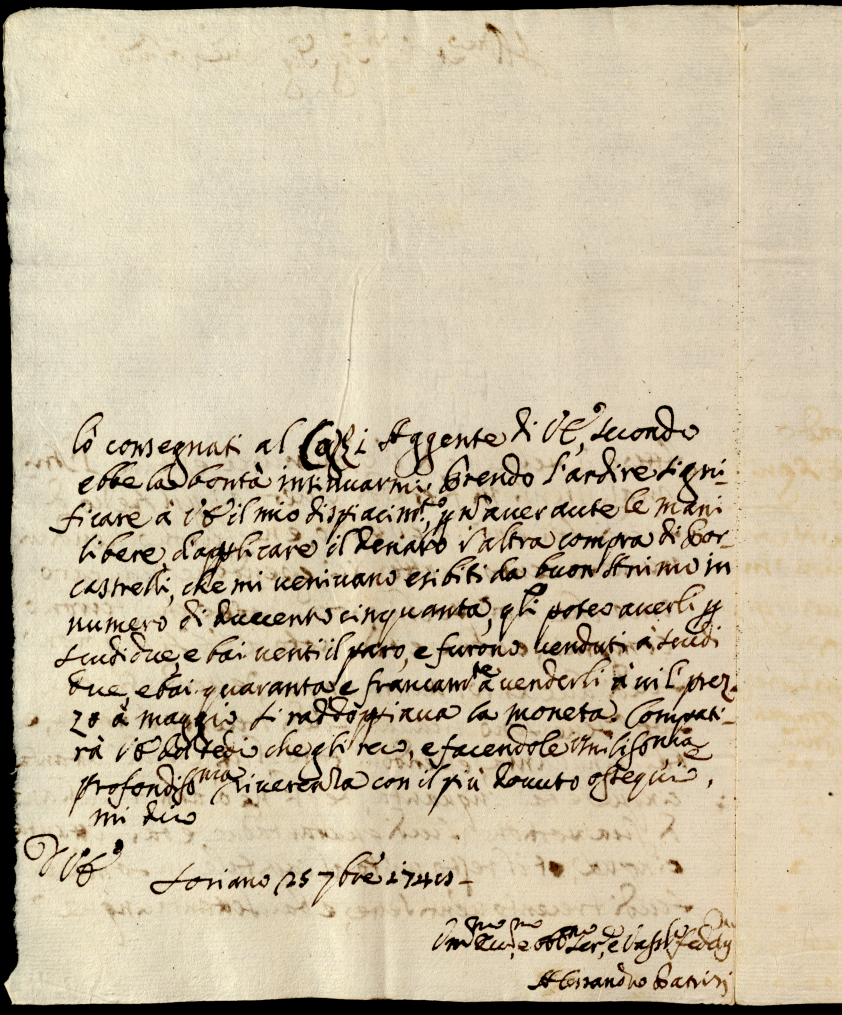 lò consegnati al Agente di V.E., secondo
ebbe la bontà insinuarmi. Prendo l'ardire signi-
ficare à V.E. il mio dispiacim.to, p. n. aver avute le mani
libere d'applicare il denaro l'altra compra di Por-
castrelli, che mi venivano esibiti da buon in
numero di duecento cinquanta, gli poteo averli p.
scudi due, e bai: venti il paro, e furono venduti à scudi
due, e bai: quaranta, e francam.te à venderli à vil prez-
zo à maggio si raddoppiava la moneta. Compati-
rà V.E. il tedio che gli reco, e facendole umilissima
profondiss.ma riverenza con il più dovuto ossequio,
mi dico
D V.E.
Soriano 25 7bre
Um.mo e obb.mo Ser.e, e Vass.lo
Alessandro Patrizi